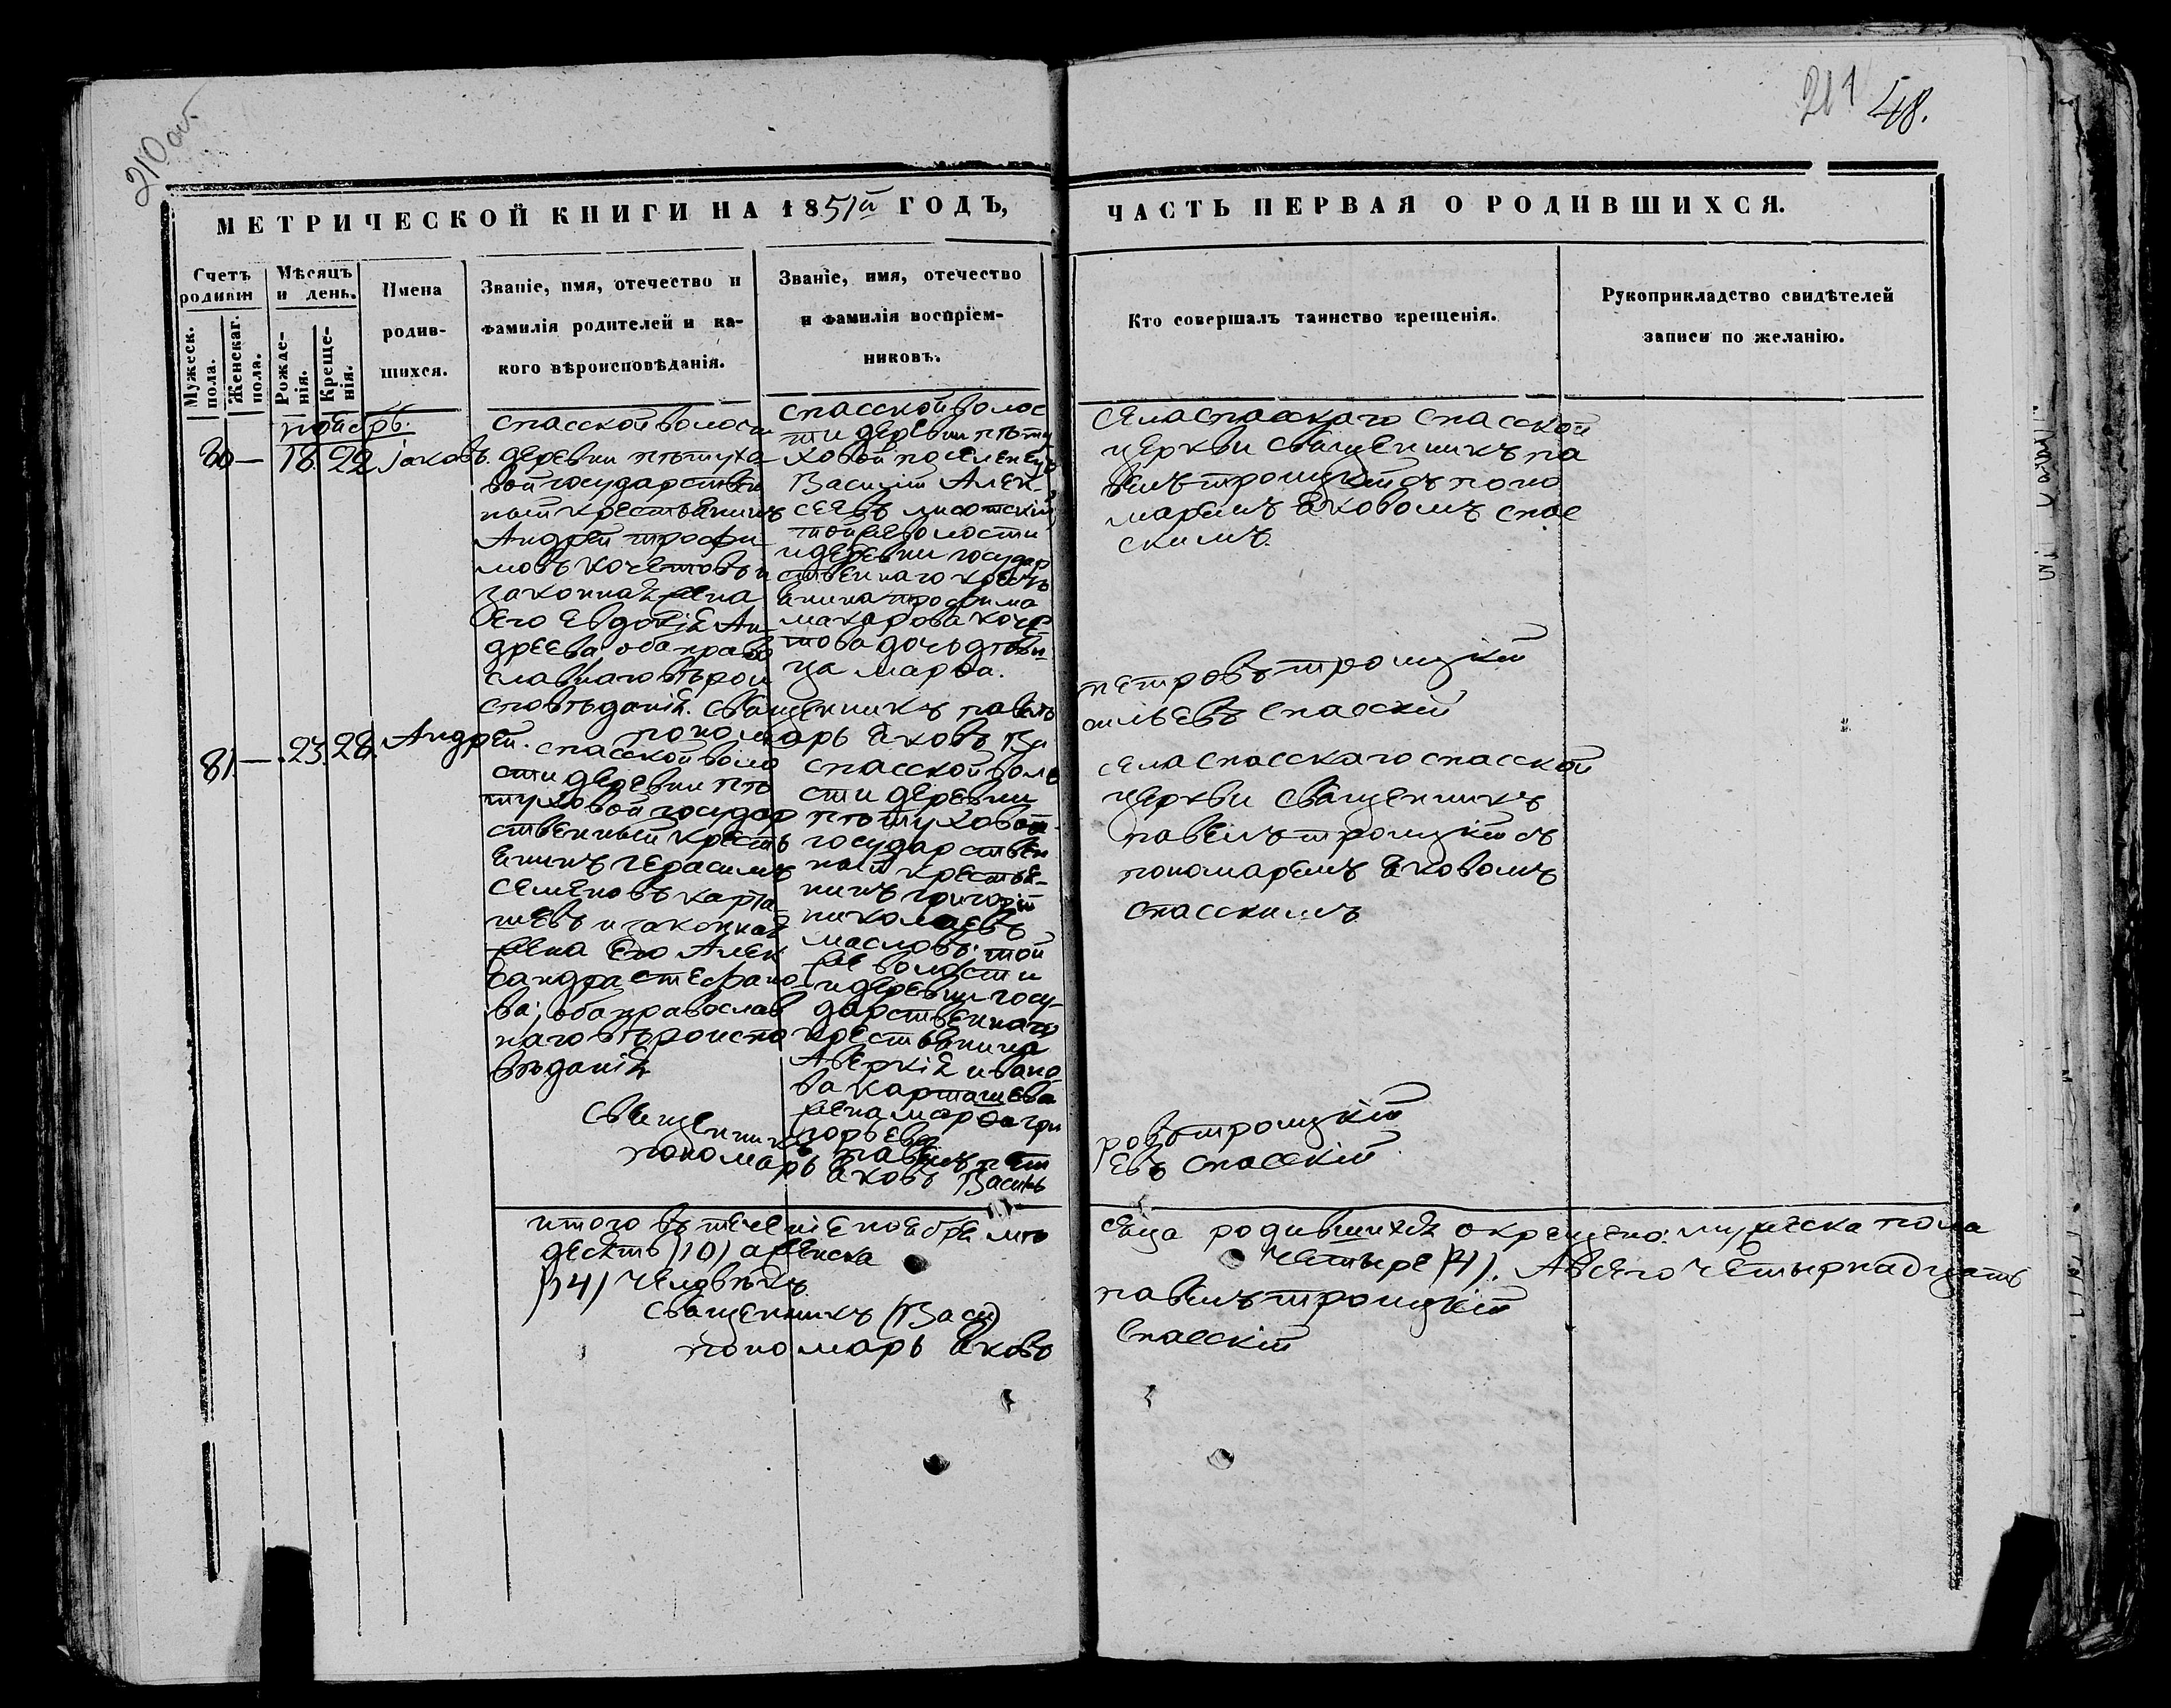 210 об
211 48.
МЕТРИЧЕСКОЙ КНИГИ НА 1851й ГОДЪ,
ЧАСТЬ ПЕРВАЯ О РОДИВШИХСЯ.
Счетъ родивш
Мужеск. пола.
Женскаг. пола.
Мѣсяцъ и день.
Рожде-
нія.
Креще-
нія.
Имена
родив-
шихся.
Званіе, имя, отечество и
фамилія родителей и ка-
кого вѣроисповѣданія.
Званіе, имя, отечество
и фамилія воспріем-
никовъ.
Кто совершалъ таинство крещенія.
Рукоприкладство свидѣтелей
записи по желанію.
ноябрь.
80 — 18 22 Іаковъ.
спасской волости
деревни пѣтухо
вой государствен
ный крестьянинъ
Андрей трофи
мовъ кочетовъ и
законная жена
его Евдокія Ан
дреева оба право
славнаго вѣрои
сповѣданія.
спасской волос
ти деревни пѣту
ховой поселенецъ
Василій Алек
сеевъ
той же волости
и деревни государ
ственнаго кресть
янина трофима
макарова коче
това дочь дѣви
ца марфа.
села спасскаго спасской
церкви священникъ па
велъ троицкій съ поно
маремъ яковомъ спас
скимъ.
священникъ павелъ петровъ троицкій
пономарь яковъ васильевъ спасскій
81 — 23 28. Андрей.
спасской воло
сти деревни пѣ
туховой государ
ственный кресть
янинъ герасимъ
семеновъ карта
шевъ и законная
жена его Алек
сандра стефано
ва; оба православ
наго вѣроиспо
вѣданія
спасской воло
сти деревни
пѣтуховой
государствен
ный крестья-
нинъ григорій
николаевъ
масловъ; той
же волости
и деревни госу-
дарственнаго
крестьянина
Аверкія ивано
ва карташева
жена марфа гри
горьева
села спасскаго спасской
церкви священникъ
павелъ троицкій съ
пономаремъ яковомъ
спасскимъ
священникъ павелъ петровъ троицкій
пономарь яковъ васильевъ спасскій
итого въ теченіе ноября мѣсяца родившихся окрещено: мужеска пола
десять (10) а женска четыре (4). А всего четырнадцать
(14) человѣкъ
священникъ павелъ троицкій
пономарь яковъ спасскій